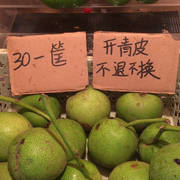 30一筐
开青皮
不退不换